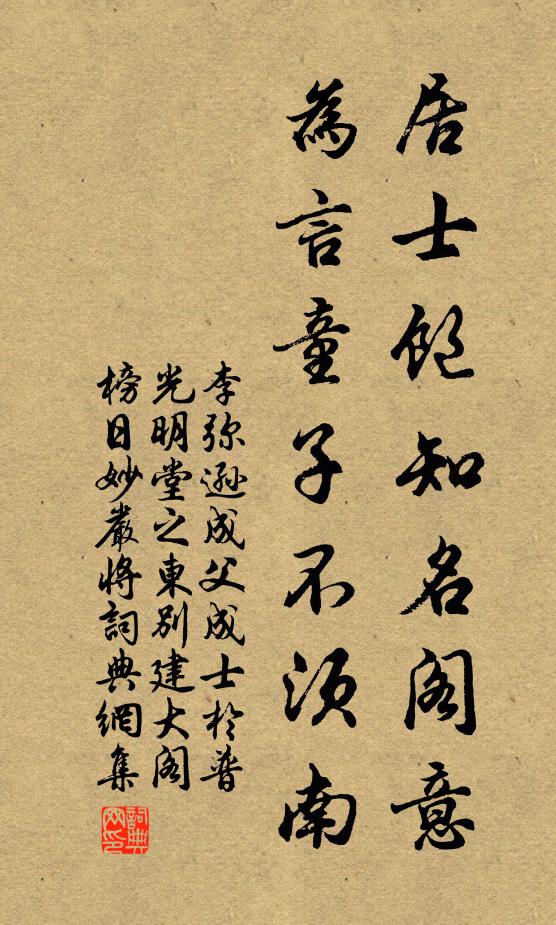 居士飽知名閣意
為言童子不須南
李弥遜成父成士於普
光明堂之東別建大閣
榜日妙嚴將詞典網集
詞典網印